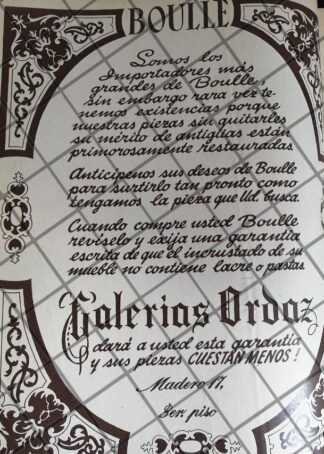 BOULLE
Somos los
Importadores más
grandes de Boulle,
sin embargo rara vez te-
nemos existencias porque
nuestras piezas sin quitarles
su mérito de antiguas están
primorosamente restauradas.
Anticípenos sus deseos de Boulle
para surtirlo tan pronto como
tengamos la pieza que Ud. busca.
Cuando compre usted Boulle
revíselo y exija una garantía
escrita de que el incrustado de su
mueble no contiene lacre o pastas.
Galerias Ordaz
dará a usted esta garantía
y sus piezas CUESTAN MENOS!
Madero 17,
3er. piso